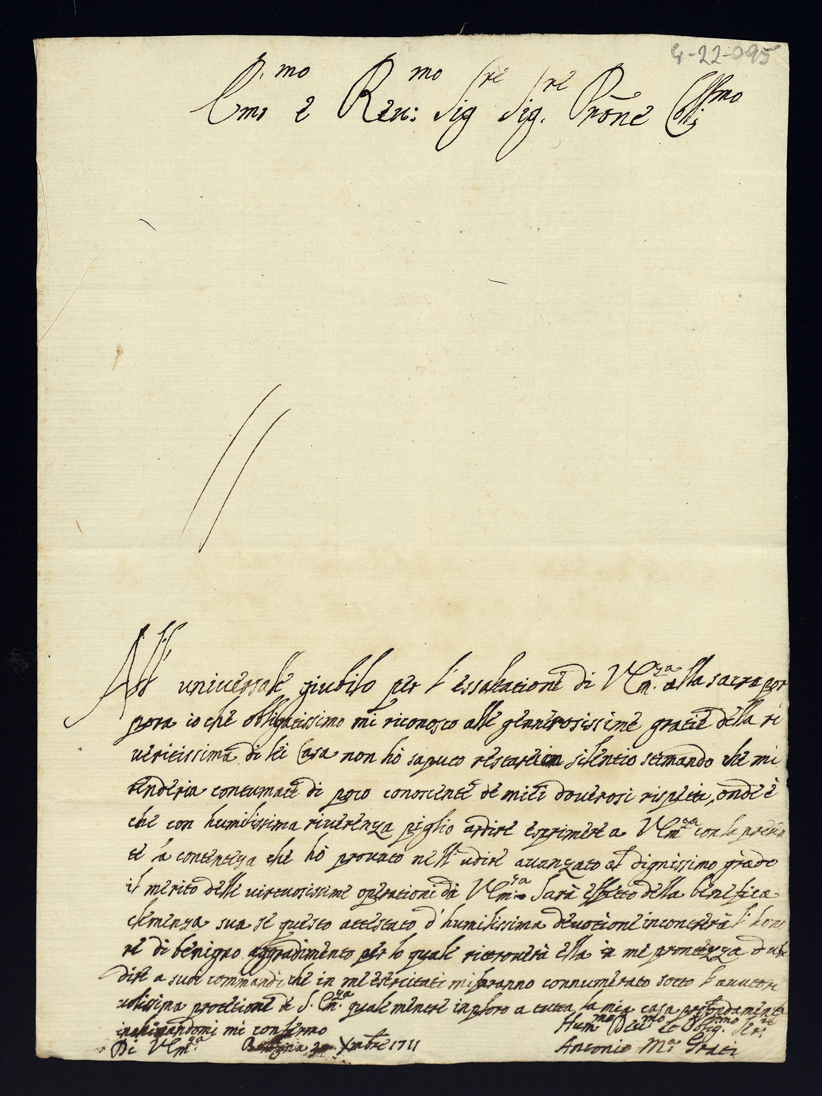 4-22-095
Em:mo e Reu:mo Sig.re Sig.re Prōne Coll:mo
All' universale giubilo per l'essaltatione di V Em.za alla sacra por
pora io che obbligatissimo mi riconosco alle generosissime gratie della ri
veritissima di lei Casa non hò saputo restare in silentio stimando che mi
renderia contumace di poco conoscente de miei doverosi rispetti, onde è
che con humilissima riverenza piglio ardire esprimere a V Em.za con la presen
te la contentezza che hò provato nell' udire avanzato al dignissimo grado
il merito delle virtuosissime operationi di V Em.za Sarà effetto della benefica
clemenza sua se questo attestato d'humilissima devotione incontrerà l'hono
re di benigno aggradimento per lo quale ritroverà ella in me prontezza d'ub
dire a suoi commandi, che in me esercitati mi saranno connumerato sotto l'auttore
volissima protetione di S. Em.za quale mentre imploro a tutta la mia casa profondamente
inchinandomi mi confermo
Di V Em.za Bologna Xmbre 1711
Hum.mo Deu.mo et Oblig.mo Ser.re
Antonio M.a Grati